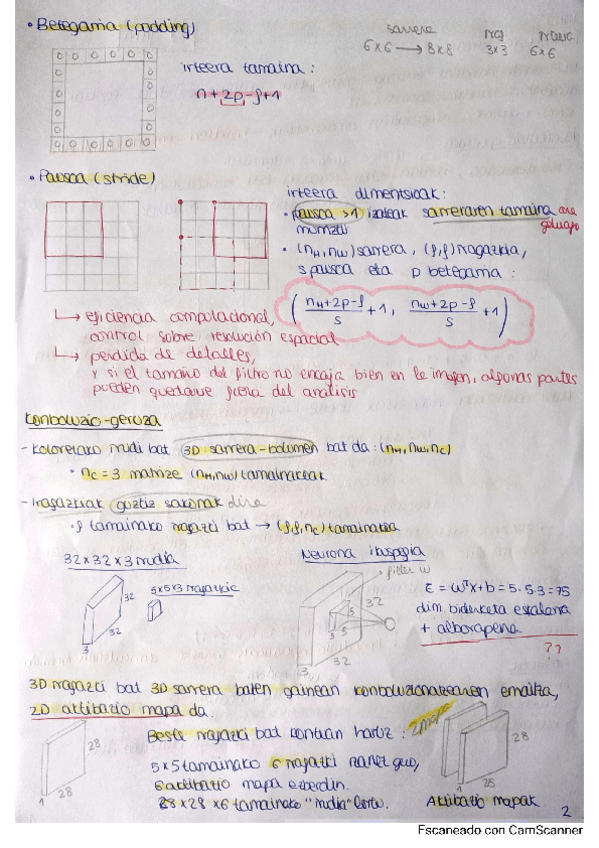 • Betegarria (padding)
sarrera
6x6 → 8x8
3x3
6x6
irteera tamaina :
n+2p-f+1
• Pausoa (stride)
irteera dimentsioak :
• pausoa >1 izateak sarreraren tamaina are gehiago
murriztu
• (nH, nW) sarrera, (f,f) iragazkia,
s pausoa eta p betegarria :
( nH+2p-f / s +1 , nW+2p-f / s +1 )
↳ eficiencia computacional,
control sobre resolución espacial
↳ perdida de detalles,
y si el tamaño del filtro no encaja bien en le imagen, algunas partes
pueden quedarse fuera del análisis
Konboluzio-geruza
- Koloretako irudi bat 3D sarrera-bolumen bat da : (nH, nW, nC)
• nC = 3 matrize (nH, nW) tamainakoak
- Iragazkiak guztiz sakonak dira
• f tamainako iragazki bat → (f,f,nC) tamainakoa
32x32x3 irudia
5x5x3 iragazkia
32
32
3
Neurona itxuragia
filter w
32
5
5
3
32
3
z = wᵀx+b = 5·5·3=75
dim. biderketa eskalarra
+ alborapena
??
3D iragazki bat 3D sarrera baten gainean konboluzionatzearen emaitza,
2D aktibazio mapa da.
28
28
1
Beste iragazki bat kontuan hartuz :
2 mapa
5x5 tamainako 6 iragazki izanez gero,
6 aktibazio mapa ezberdin.
28x28x6 tamainako "irudia" lortu.
28
28
1
Aktibazio mapak
2
Escaneado con CamScanner